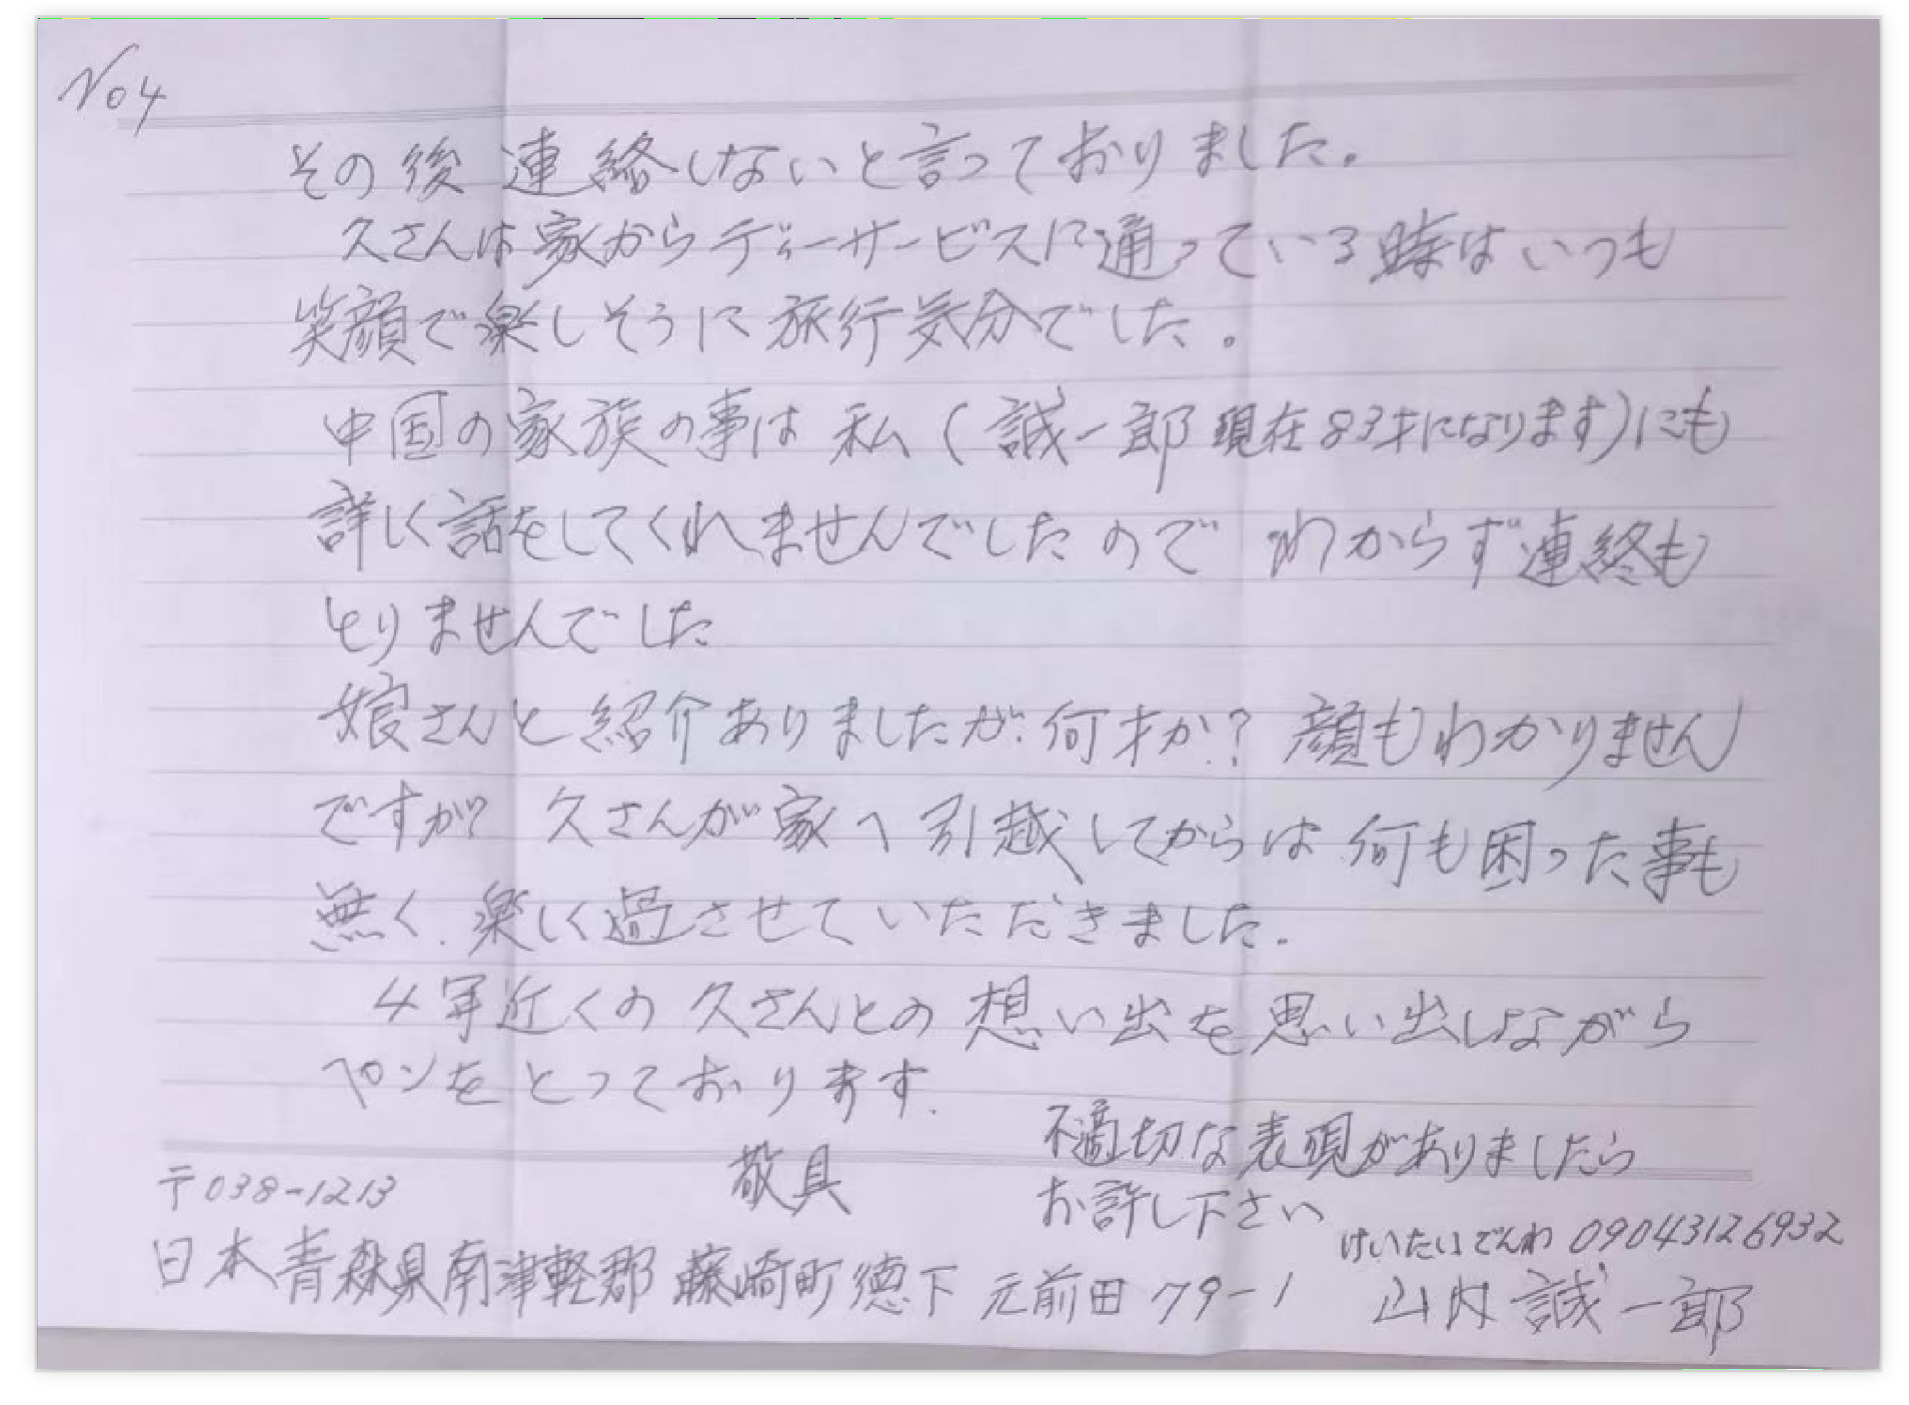 No4
その後 連絡しないと言っておりました。
久さんは家からディーサービスに通っている時はいつも
笑顔で楽しそうに旅行気分でした。
中国の家族の事は 私(誠一郎 現在83才になります)にも
詳しく話をしてくれませんでしたので わからず連終も
とりませんでした
娘さんと紹介ありましたが、何才か? 顔もわかりません
ですが 久さんが家へ引越してからは 何も困った事も
無く、楽しく過させていただきました。
4年近くの 久さんとの 想い出を思い出しながら
ペンをとっております。
不適切な表現がありましたら
敬具
お許し下さい
〒038-1213
けいたいでんわ 09043126932
日本青森県南津軽郡 藤崎町徳下 元前田79-1 山内誠一郎